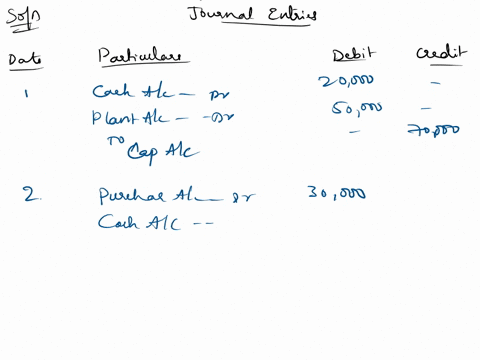 Soln Journal Entries
Date Particulars Debit Credit
1 Cash A/c — Dr 20,000 -
Plant A/c — Dr 50,000 -
TO Cap A/c - 70,000
2 Purchae A/c — Dr 30,000
Cash A/c --